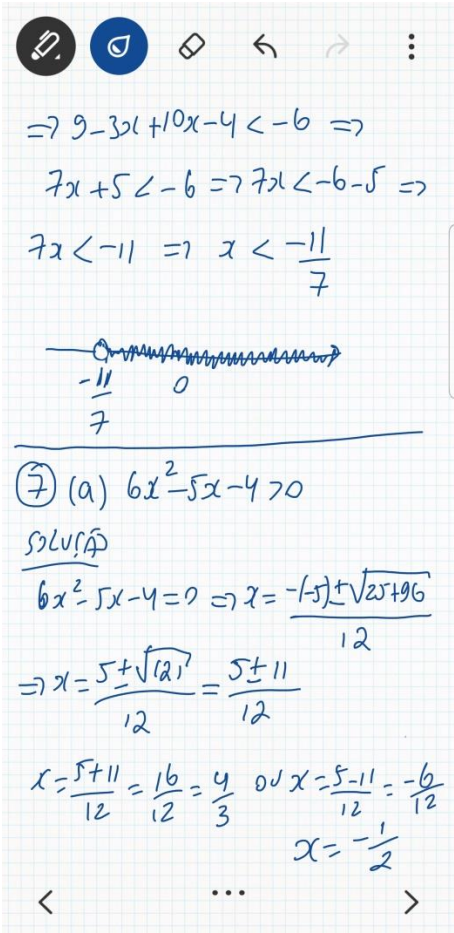 => 9-3x+10x-4 < -6 =>
7x+5 < -6 => 7x < -6-5 =>
7x < -11 => x < -11/7
-11/7 0
⑦ (a) 6x²-5x-4 > 0
SOLUÇÃO
6x²-5x-4=0 => x = -(-5)±√25+96/12
=> x = 5±√121/12 = 5±11/12
x = 5+11/12 = 16/12 = 4/3 ou x = 5-11/12 = -6/12
x = -1/2